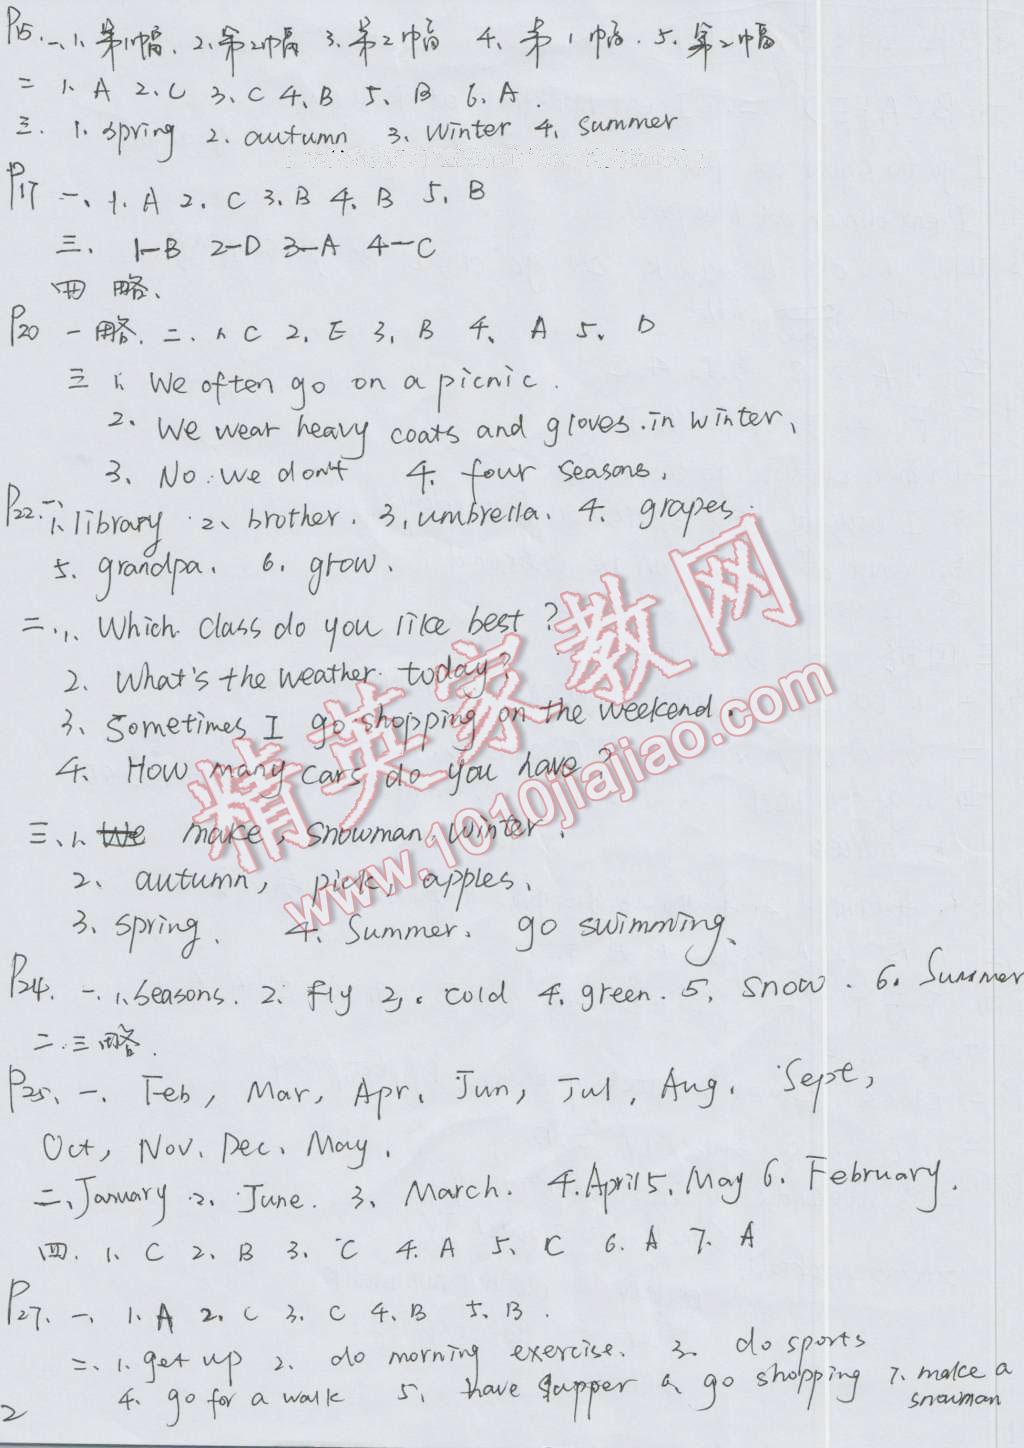 P15. 一、1、第1幅. 2、第2幅 3、第2幅 4、第1幅. 5、第2幅
二 1、A 2、C 3、C 4、B 5、B 6、A.
三. 1、spring 2、autumn 3、winter 4、summer
P17 一、1、A 2、C 3、B 4、B 5、B
三、1-B 2-D 3-A 4-C
四 略、
P20 一 略. 二、1、C 2、E 3、B 4、A 5、D
三 1、We often go on a picnic.
2、We wear heavy coats and gloves in winter、
3、No. we don't 4、four seasons.
P22. 一、1、library 2、brother. 3、umbrella. 4、grapes.
5、grandpa. 6、grow.
二、1、Which class do you like best?
2、What's the weather today?
3、Sometimes I go shopping on the weekend.
4、How many cars do you have?
三、1、make, snowman, winter.
2、autumn, pick, apples.
3、spring. 4、Summer. go swimming、
P24. 一、1、seasons. 2、fly 3、cold 4、green. 5、snow. 6、Summer
二.三 略.
P25、一、Feb, Mar, Apr. Jun, Jul, Aug. Sept,
Oct, Nov. Dec. May.
二、January 2、June. 3、March. 4、April 5、May 6、February.
四. 1、C 2、B 3、C 4、A 5、C 6、A 7、A
P27、一、1、A 2、C 3、C 4、B 5、B.
二、1、get up 2、do morning exercise. 3、do sports
4、go for a walk 5、have supper 6、go shopping 7、make a
snowman
2
精英家教网
www.1010jiajiao.com